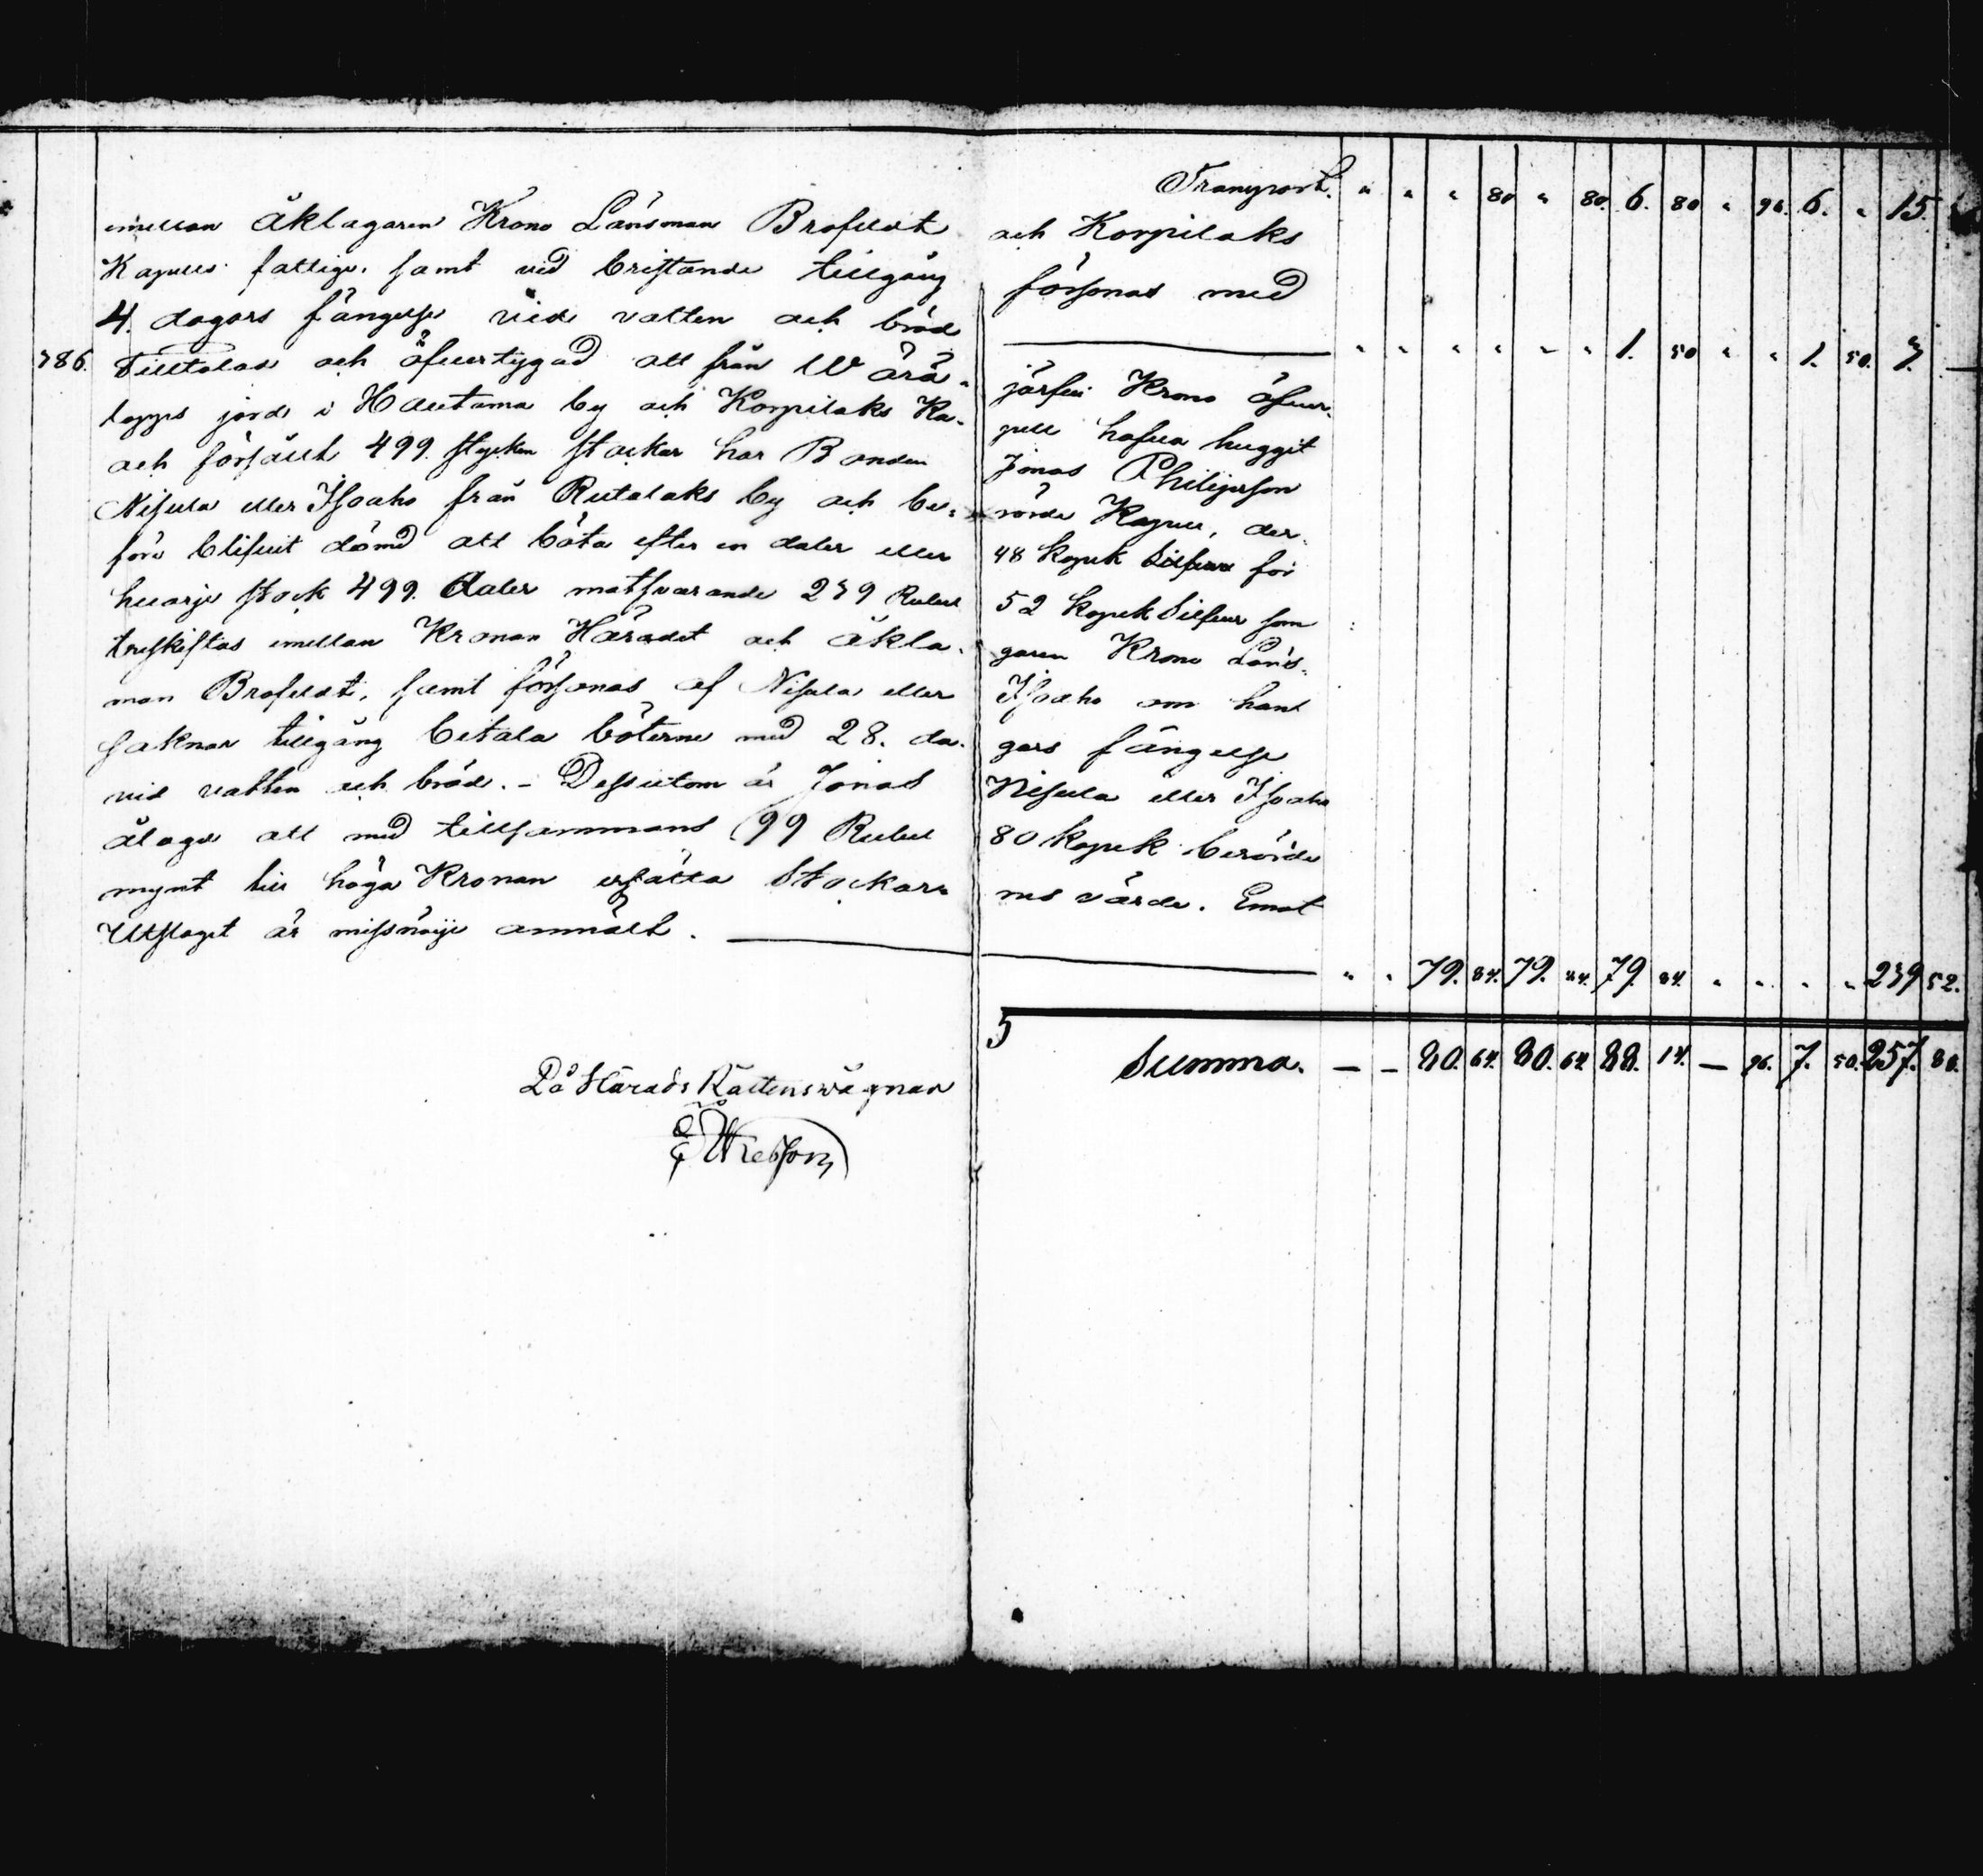 Transport. " " " 80 " 80. 6. 80 " 96. 6. " 15.
emellan åklagaren Krono Länsman Brofeldt och Korpilaks
Kapells fattige, samt vid bristande tillgång försonas med
4. dagars fängelse vid vatten och bröd " " " " " " 1. 50 " " 1. 50. 3. —
386. Tilltalad och öfvertygad att från Wärä- järfvi Krono öfver-
lopps jord i Hautama by och Korpilaks Ka- pell hafva huggit
och försålt 499. stycken stockar har Bonden Jonas Philipsson
Nisula eller Isoaho från Rutalaks by och be- rörde Kapell, der-
före blifvit dömd att böta efter en daler eller 48 kopek Silfver för
hvarje stock 499. daler motsvarande 239 Rubel 52 kopek Silfver som
treskiftas emellan Kronan Häradet och åkla- garen Krono Läns-
man Brofeldt, samt försonas af Nisula eller Isoaho om han
saknar tillgång betala böterne med 28. da- gars fängelse
vid vatten och bröd. - Dessutom är Jonas Nisula eller Isoaho
ålagd att med tillsammans 99 Rubel 80 kopek berörde
mynt till höga Kronan ersätta Stockar- nes värde. Emot
Utslaget är missnöje anmält. " " 79. 84. 79. 84. 79. 84. " " " " 239 52.
Summa. — — 80. 64. 80. 64 88. 14. — 96. 7. 50. 257. 80.
På Härads Rättens wägnar